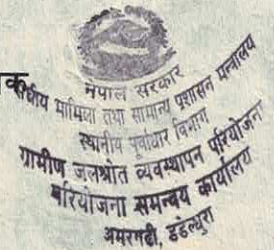 क
नेपाल सरकार
संघीय मामिला तथा सामान्य प्रशासन मन्त्रालय
स्थानीय पूर्वाधार विभाग
ग्रामीण जलश्रोत व्यवस्थापन परियोजना
परियोजना समन्वय कार्यालय
अमरगढी, डडेल्धुरा